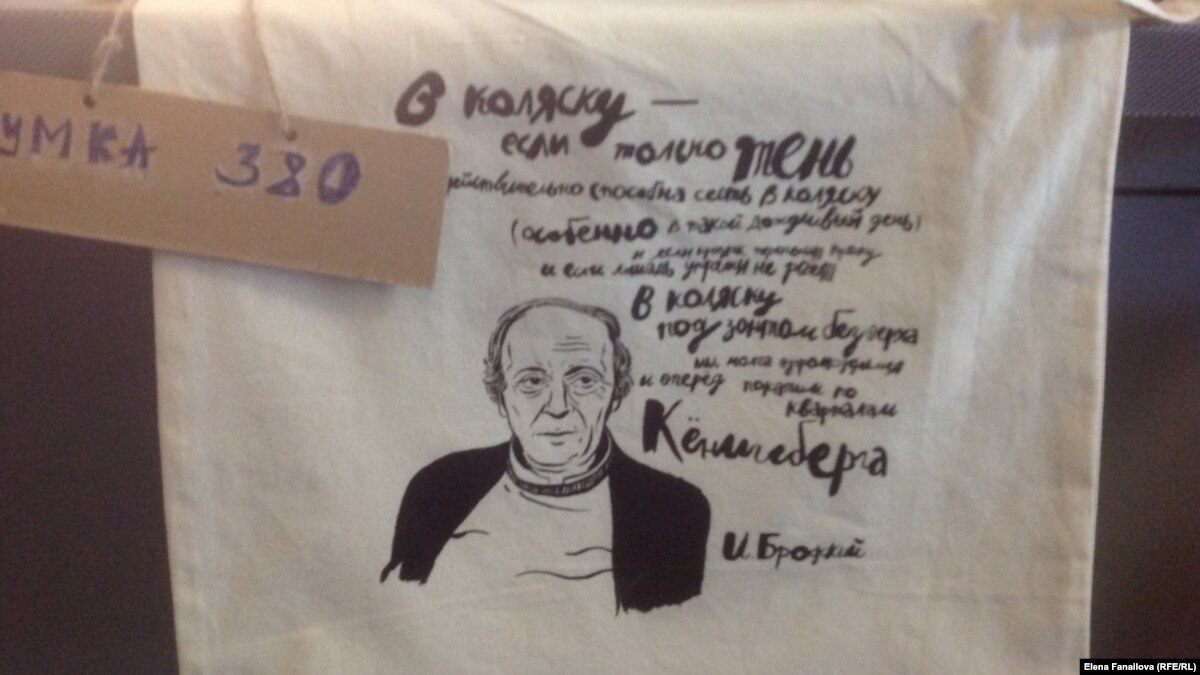 УМКА 380
В коляску —
если только тень
йствительно способна сесть в коляску
(особенно в такой дождливый день)
и если призрак переносит тряску
и если лошадь упряжи не рвёт
В коляску
под зонтом без верха
мы молча взгромоздимся
и вперёд покатим по
кварталам
Кёнигсберга
И. Бродский
Elena Fanailova (RFE/RL)